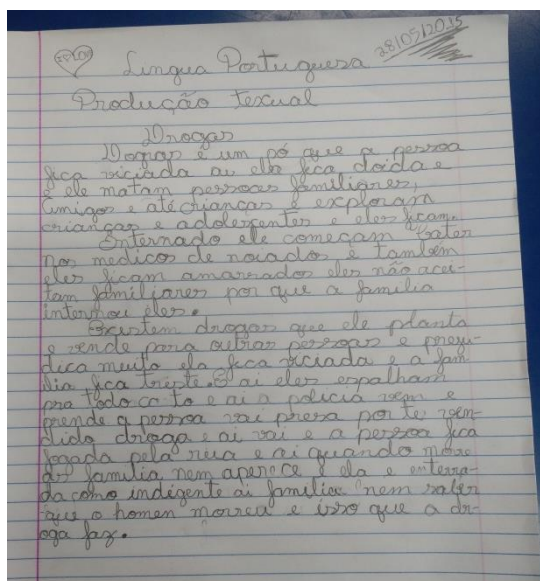 28/05/2015
Lingua Portuguesa
Produção texual
Drogas
Dogras é um pó que a pessoa
fica viciada ai ela fica doida e
e ele matam pessoas familiares,
Amigos e até crianças e exploram
crianças e adolescentes e eles ficam.
Enternado ele começam bater
nos medicos de noiados e também
eles ficam amarrados eles não acei-
tam familiares por que a familia
internou eles.
Existem drogas que ele planta
e vende para outras pessoas e preju-
dica muito ela fica viciada e a fam-
ilia fica triste. E ai eles espalham
pra todo cato e ai a policia vem e
prende a pessoa vai presa por te ven-
dido droga e ai vai e a pessoa fica
jogada pela rua e ai quando morre
as familia nem aparece e ela e enterra-
da como indigente ai familia nem saber
que o homen morreu e isso que a dr-
oga faz.